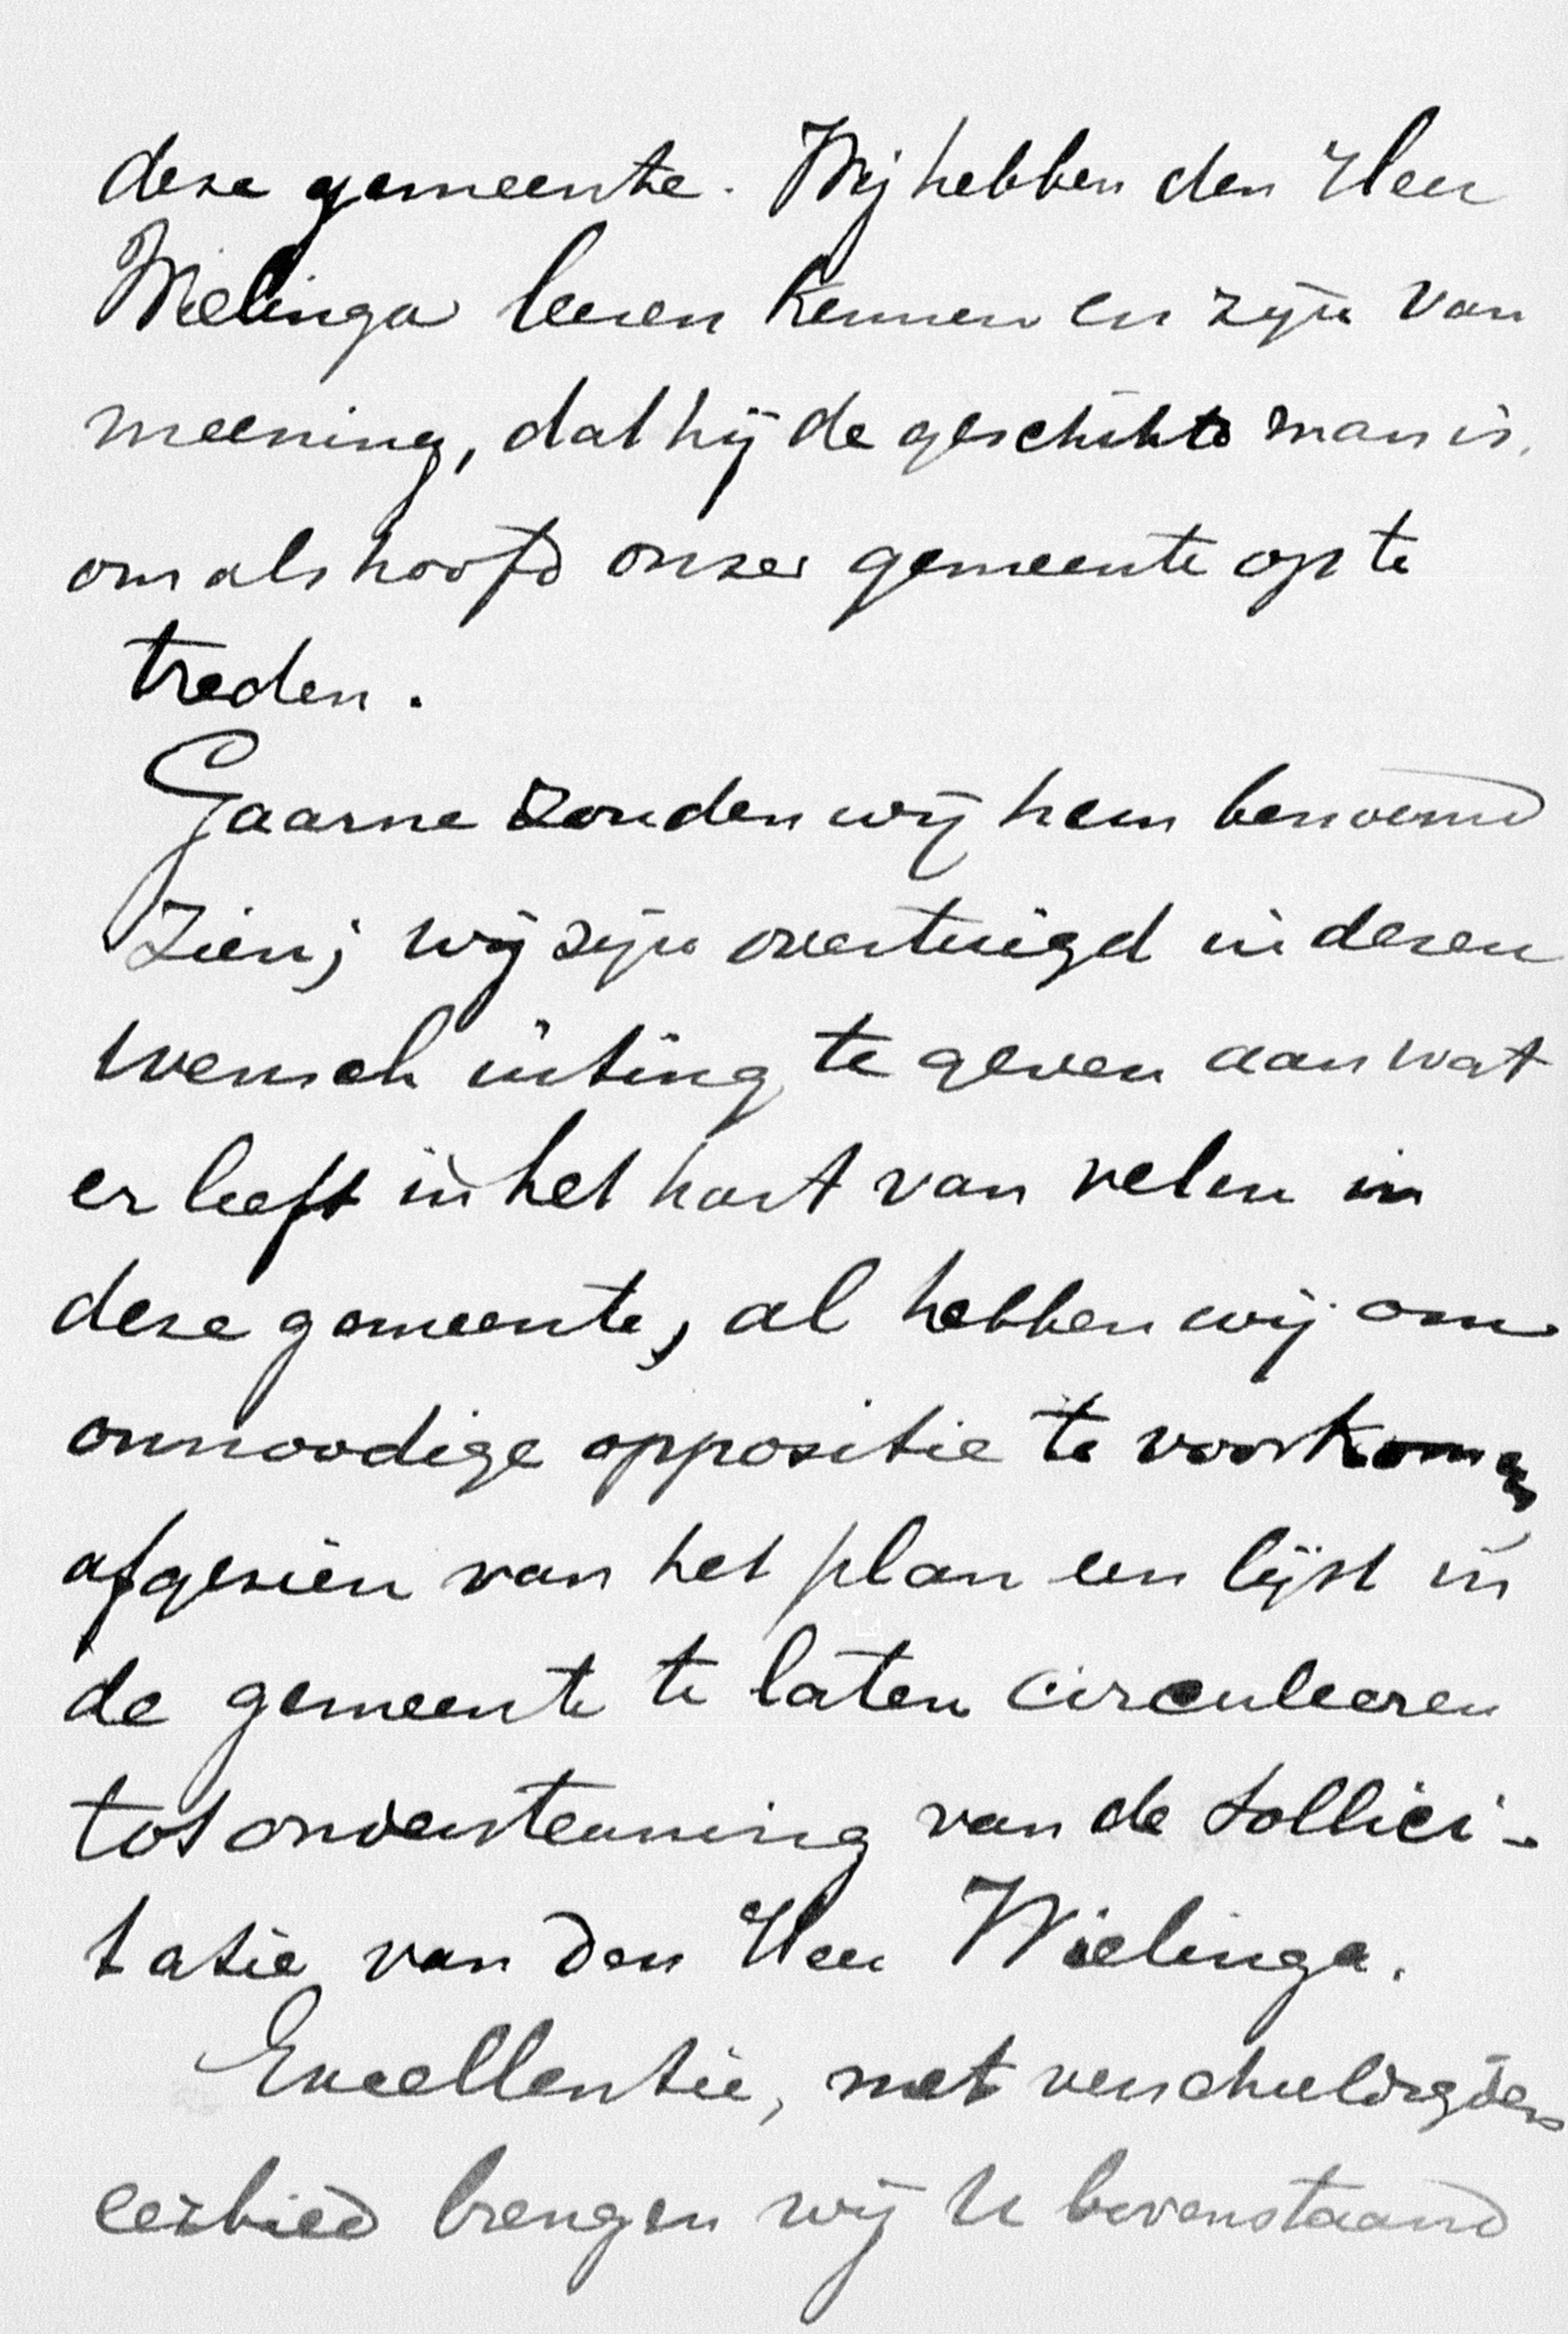 deze gemeente. Wij hebben den Heer
Wielinga leeren kennen en zijn van
meening, dat hij de geschikte man is,
om als hoofd onzer gemeente op te
treden.
Gaarne zouden wij hem benoemd
zien; wij zijn overtuigd in dezen
wensch uiting te geven aan wat
er leeft in het hart van velen in
deze gemeente, al hebben wij om
onnoodige oppositie te voorkomen
afgezien van het plan een lijst in
de gemeente te laten circuleeren
tot ondersteuning van de sollici-
tatie van den Heer Wielinga.
Excellentie, met verschuldigden
eerbied brengen wij U bovenstaand